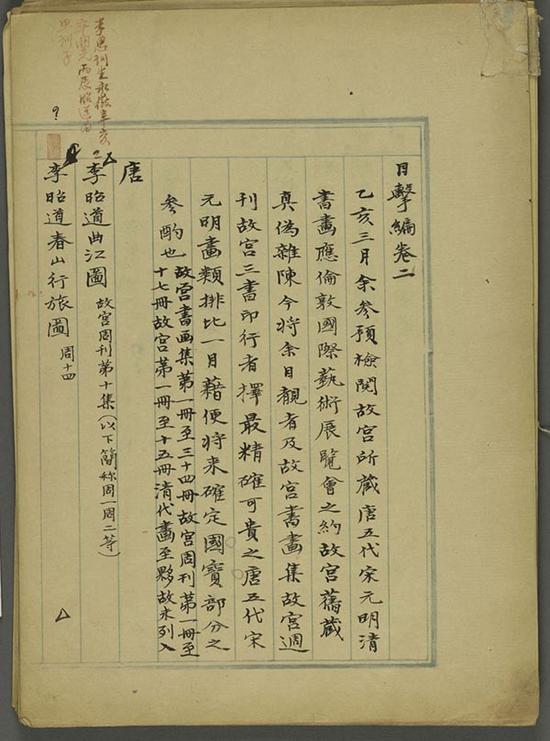 目擊編卷二
乙亥三月余參預檢閱故宮所藏唐五代宋元明清
書畫應倫敦國際藝術展覽會之約故宮舊藏
真偽雜陳今將余目覩者及故宮書畫集故宮週
刊故宮三書印行者擇最精確可貴之唐五代宋
元明畫類排比一目藉便將來確定國寶部分之
參酌也
故宮書画集第一冊至三十四冊故宮周刊第一冊至
十七冊故宮第一冊至十五冊清代畫至夥故未列入
唐
李昭道曲江圖
故宮周刊第十集(以下簡称周一周二等)
李昭道春山行旅圖
周十四